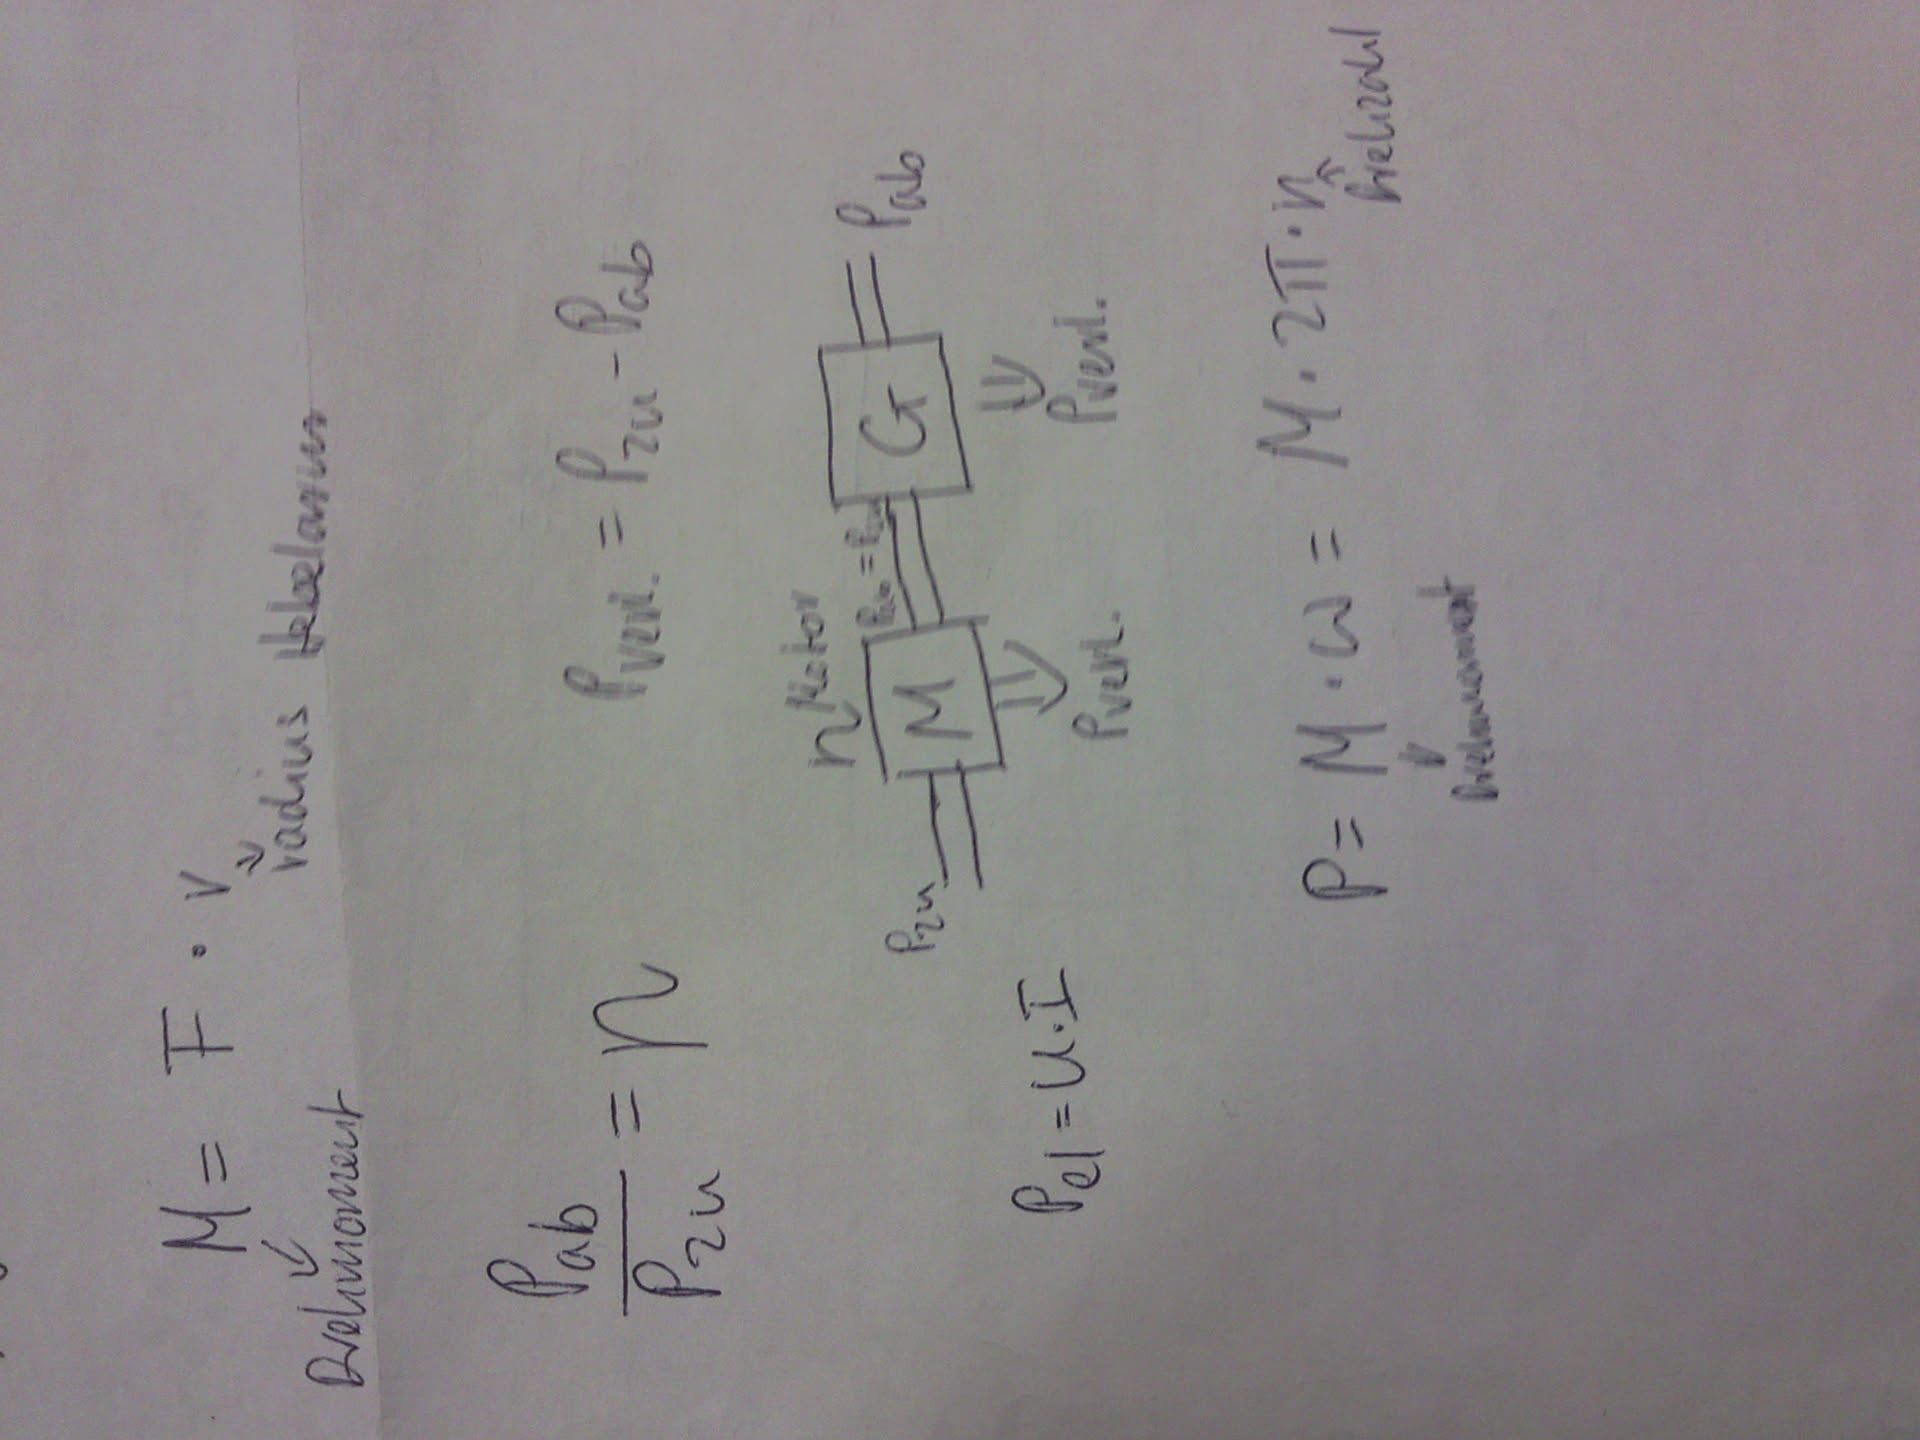 M = F · r
Drehmoment
radius Hebelarm
Pab / Pzu = η
Pverl. = Pzu - Pab
η Motor
Pzu
M
Pab = Pzu
G
Pab
Pverl.
Pverl.
Pel = U · I
P = M · ω = M · 2π · n
Drehmoment
Drehzahl